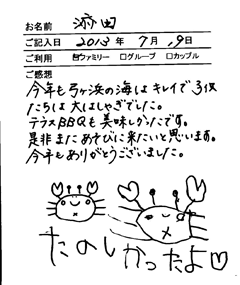 お名前 添田
ご記入日 2013年 7月 19日
ご利用 ☑ファミリー □グループ □カップル
ご感想
今年も弓ヶ浜の海はキレイで子供
たちは大はしゃぎでした。
テラスBBQも美味しかったです。
是非またあそびに来たいと思います。
今年もありがとうございました。
たのしかったよ♡